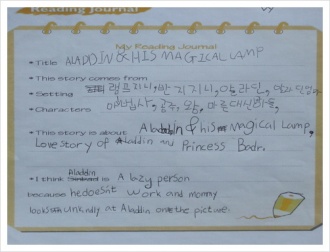 Reading Journal
My Reading Journal
Title ALADDIN & HIS MAGICAL LAMP
This story comes from
Setting 램프지니, 반지지니, 알라딘,
Characters 마법사, 공주, 왕,
This story is about Aladdin & his magical Lamp,
Love story of Aladdin and Princess Badr.
Aladdin
I think is A lazy person
because he doesn't work and mommy
looks unkindly at Aladdin on the picture.